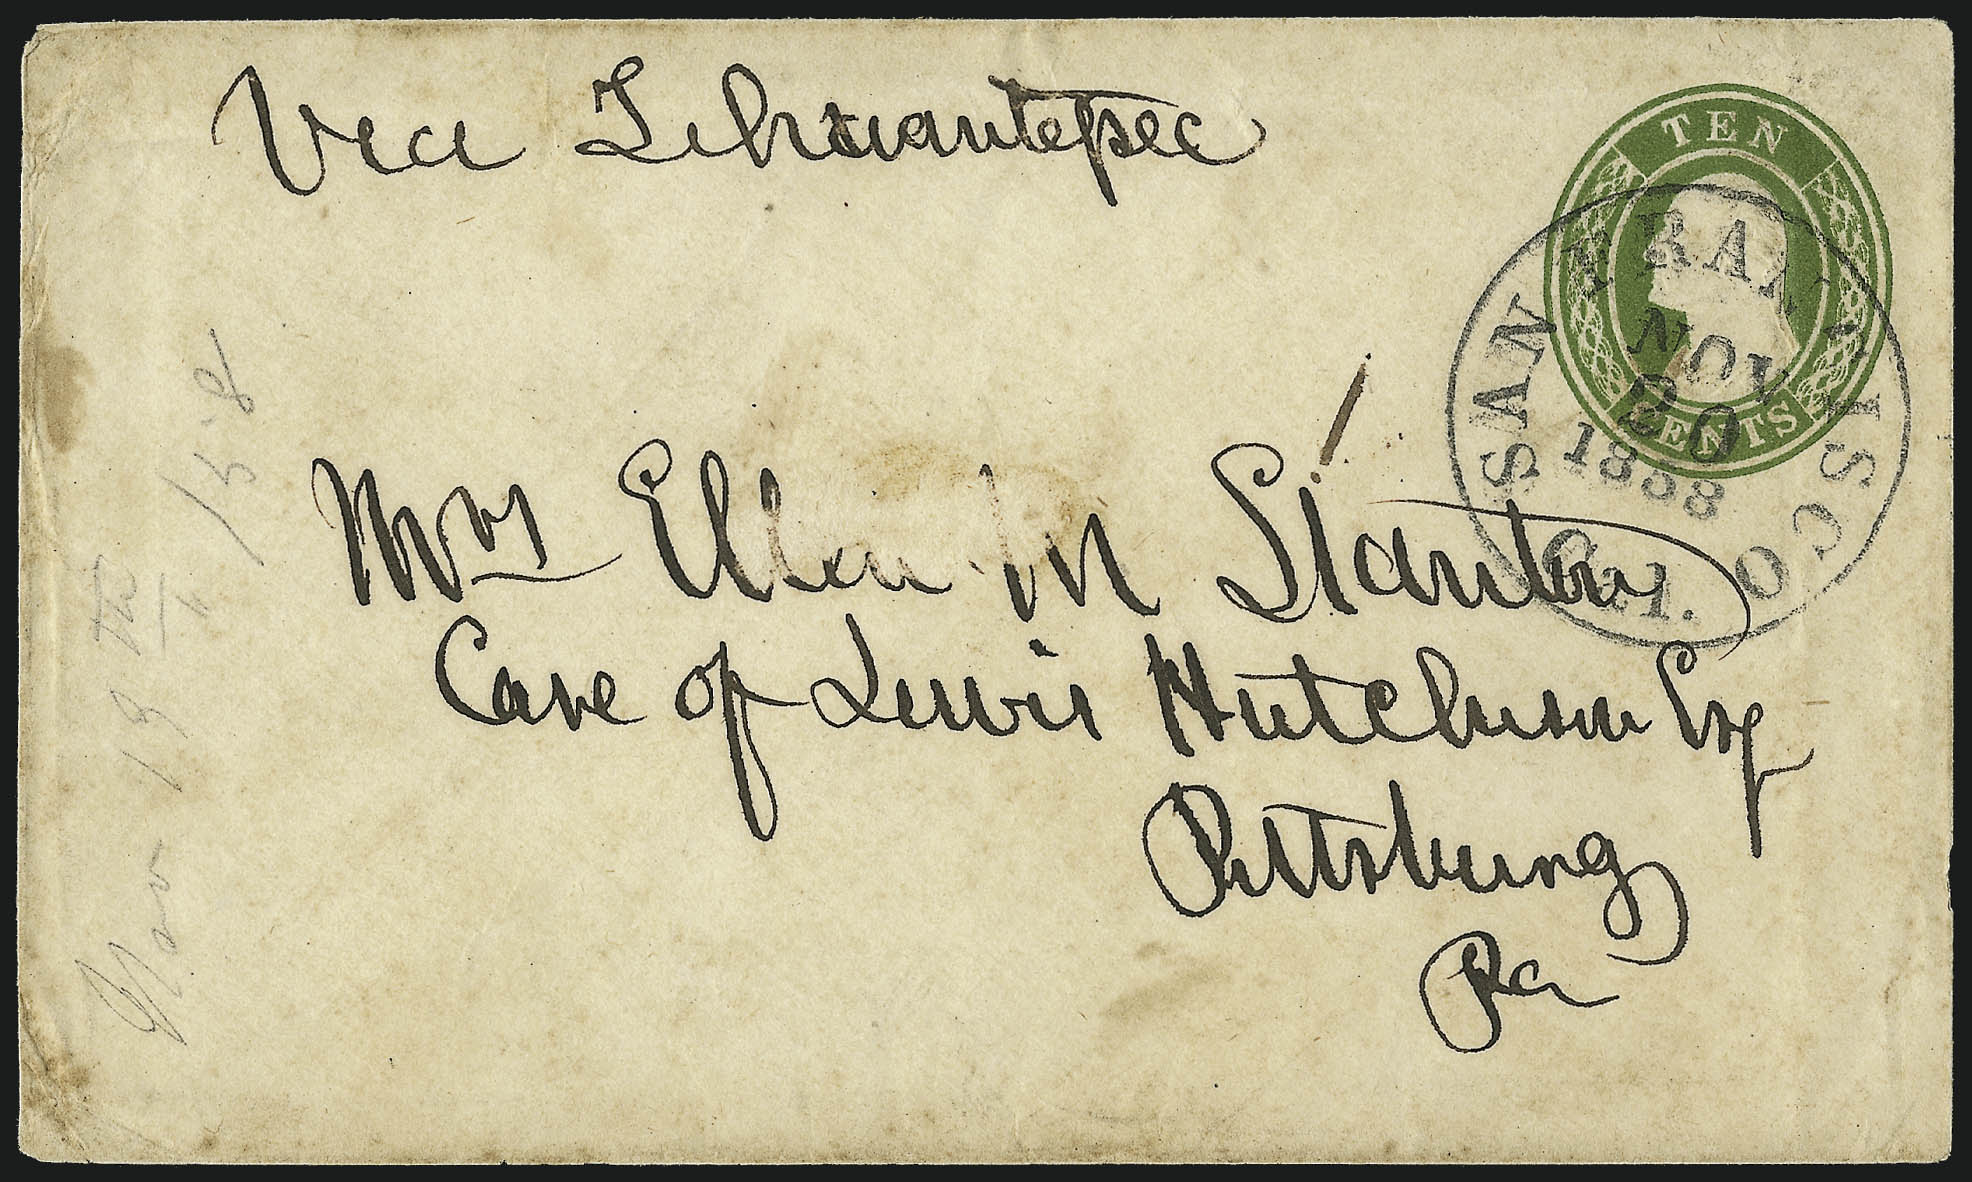 Via Tehuantepec
TEN
CENTS
SAN FRANCISCO
Cal.
NOV
20
1858
Mrs Ellen M Stanton
Care of Lewis Hutchison Esq
Pittsburg
Pa
Nov 19th /58